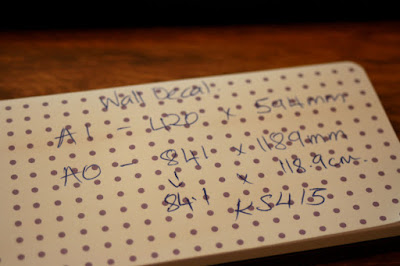 Wall Decal.
A1 - 420 x 594mm
A0 - 841 x 1189mm
84.1 x 118.9cm.
KS415